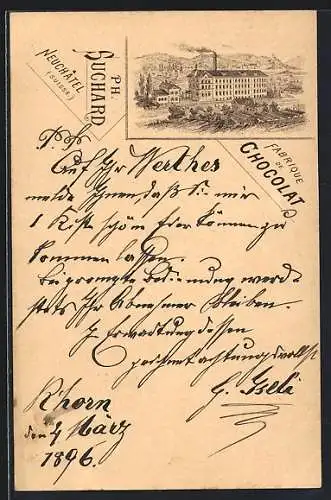 PH. SUCHARD
NEUCHÂTEL
(SUISSE)
FABRIQUE
DE
CHOCOLAT
P. P.
Auf Ihr Werthes
melde Ihnen daß Sie mir
1 Kiste schöne Eier können zu
kommen lassen.
Bei prompte Bedienung werde
stets Ihr Abnehmer bleiben.
In Erwartung dessen
zeichnet achtungsvollst
G. Iseli
Khorn
den 4 März
1896.